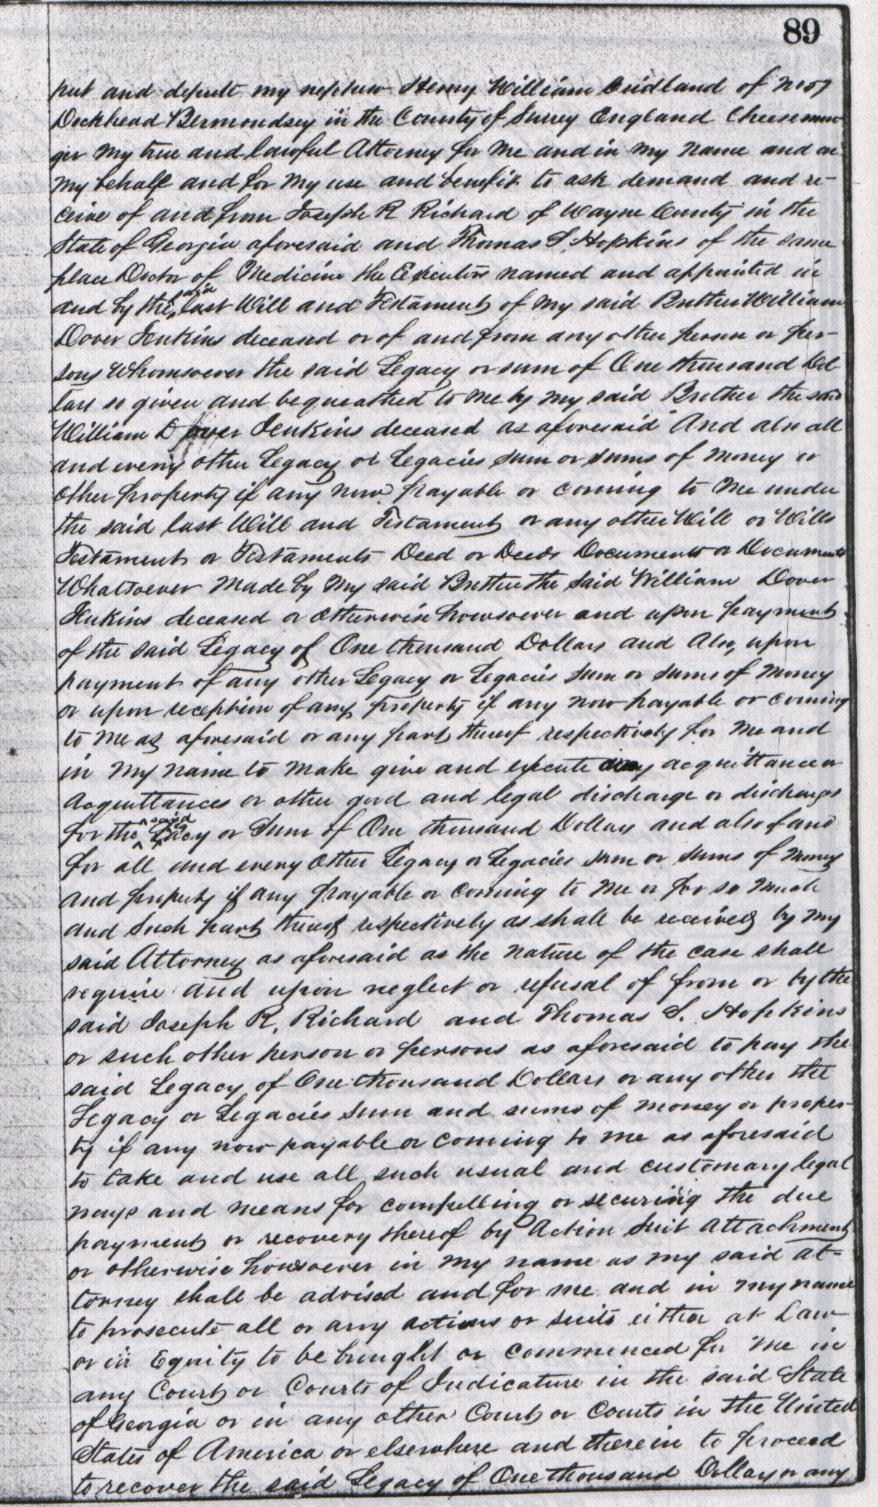 89
put and depute my nephew Henry William Cridland of No 07
Dockhead Bermondsey in the County of Surrey England Cheesemon-
ger my true and lawful Attorney for me and in my name and on
my behalf and for my use and benefit to ask demand and re-
ceive of and from Joseph R Richard of Wayne County in the
State of Georgia aforesaid and Thomas S. Hopkins of the same
place Doctor of Medicine the Executors named and appointed in
and by the said last Will and Testament of my said Brother William
Dover Jenkins deceased or of and from any other person or per-
sons whomsoever the said Legacy or sum of One thousand Dol-
lars so given and bequeathed to me by my said Brother the said
William Dover Jenkins deceased as aforesaid And also all
and every other Legacy or Legacies sum or sums of money or
other property if any now payable or coming to me under
the said last Will and Testament or any other Will or Wills
Testament or Testaments Deed or Deeds Document or Documents
Whatsoever made by my said Brother the said William Dover
Jenkins deceased or otherwise howsoever and upon payment
of the said Legacy of One thousand Dollars and also upon
payment of any other Legacy or Legacies sum or sums of money
or upon reception of any property if any now payable or coming
to me as aforesaid or any part thereof respectively for me and
in my name to make give and execute any acquittance or
acquittances or other good and legal discharge or discharges
for the said Legacy or sum of One thousand Dollars and also of and
for all and every other Legacy or Legacies sum or sums of money
and property if any payable or coming to me or for so much
and such part thereof respectively as shall be received by my
said Attorney as aforesaid as the nature of the case shall
require and upon neglect or refusal of from or by the
said Joseph R. Richard and Thomas S. Hopkins
or such other person or persons as aforesaid to pay the
said Legacy of One thousand Dollars or any other the
Legacy or Legacies sum and sums of money or proper-
ty if any now payable or coming to me as aforesaid
to take and use all such usual and customary legal
ways and means for compelling or securing the due
payment or recovery thereof by Action Suit Attachment
or otherwise howsoever in my name as my said at-
torney shall be advised and for me and in my name
to prosecute all or any actions or suits either at Law
or in Equity to be brought or commenced for me in
any Court or Courts of Judicature in the said State
of Georgia or in any other Court or Courts in the United
States of America or elsewhere and therein to proceed
to recover the said Legacy of One thousand Dollars or any